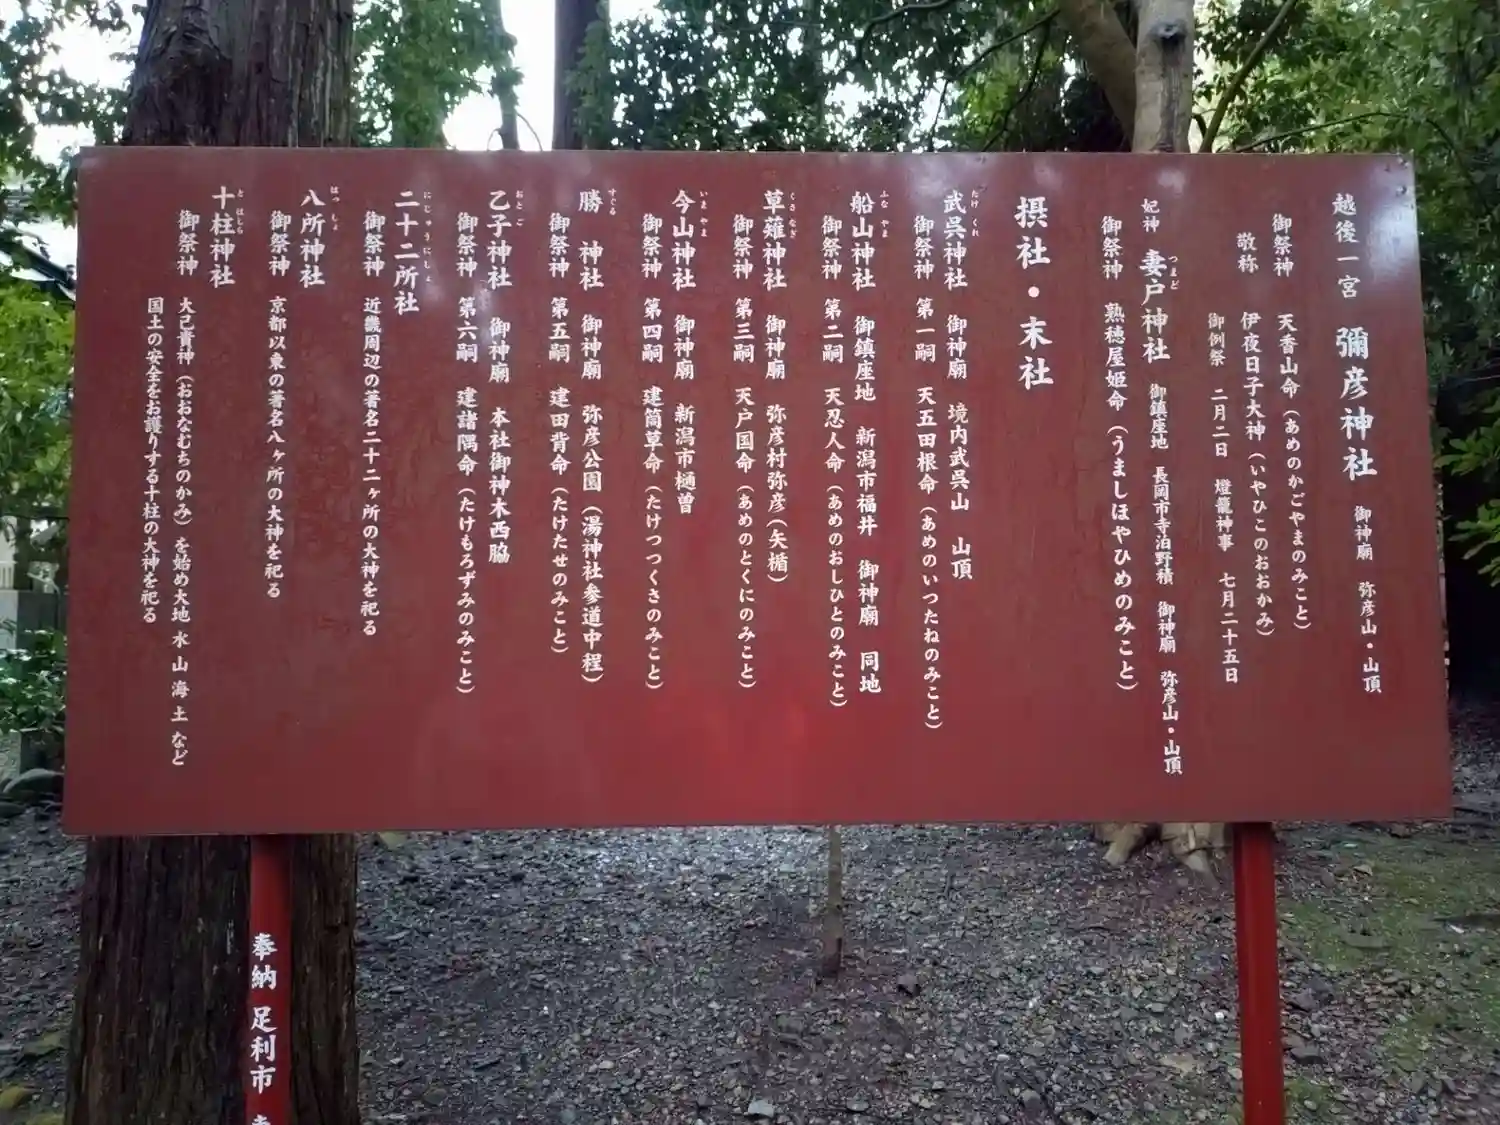 越後一宮 彌彦神社 御神廟 弥彦山・山頂
御祭神 天香山命（あめのかごやまのみこと）
敬称 伊夜日子大神（いやひこのおおかみ）
御例祭 二月二日 燈籠神事 七月二十五日
妃神 妻戸神社 御鎮座地 長岡市寺泊野積 御神廟 弥彦山・山頂
つまど
御祭神 熟穂屋姫命（うましほやひめのみこと）
摂社・末社
武呉神社 御神廟 境内武呉山 山頂
たけくれ
御祭神 第一嗣 天五田根命（あめのいつたねのみこと）
船山神社 御鎮座地 新潟市福井 御神廟 同地
ふなやま
御祭神 第二嗣 天忍人命（あめのおしひとのみこと）
草薙神社 御神廟 弥彦村弥彦（矢楯）
くさなぎ
御祭神 第三嗣 天戸国命（あめのとくにのみこと）
今山神社 御神廟 新潟市樋曽
いまやま
御祭神 第四嗣 建筒草命（たけつつくさのみこと）
勝 神社 御神廟 弥彦公園（湯神社参道中程）
すぐる
御祭神 第五嗣 建田背命（たけたせのみこと）
乙子神社 御神廟 本社御神木西脇
おとご
御祭神 第六嗣 建諸隅命（たけもろずみのみこと）
二十二所社
にじゅうにしょ
御祭神 近畿周辺の著名二十二ヶ所の大神を祀る
八所神社
はっしょ
御祭神 京都以東の著名八ヶ所の大神を祀る
十柱神社
とはしら
御祭神 大己貴神（おおなむちのかみ）を始め大地 水 山 海 土 など
国土の安全をお護りする十柱の大神を祀る
奉納 足利市